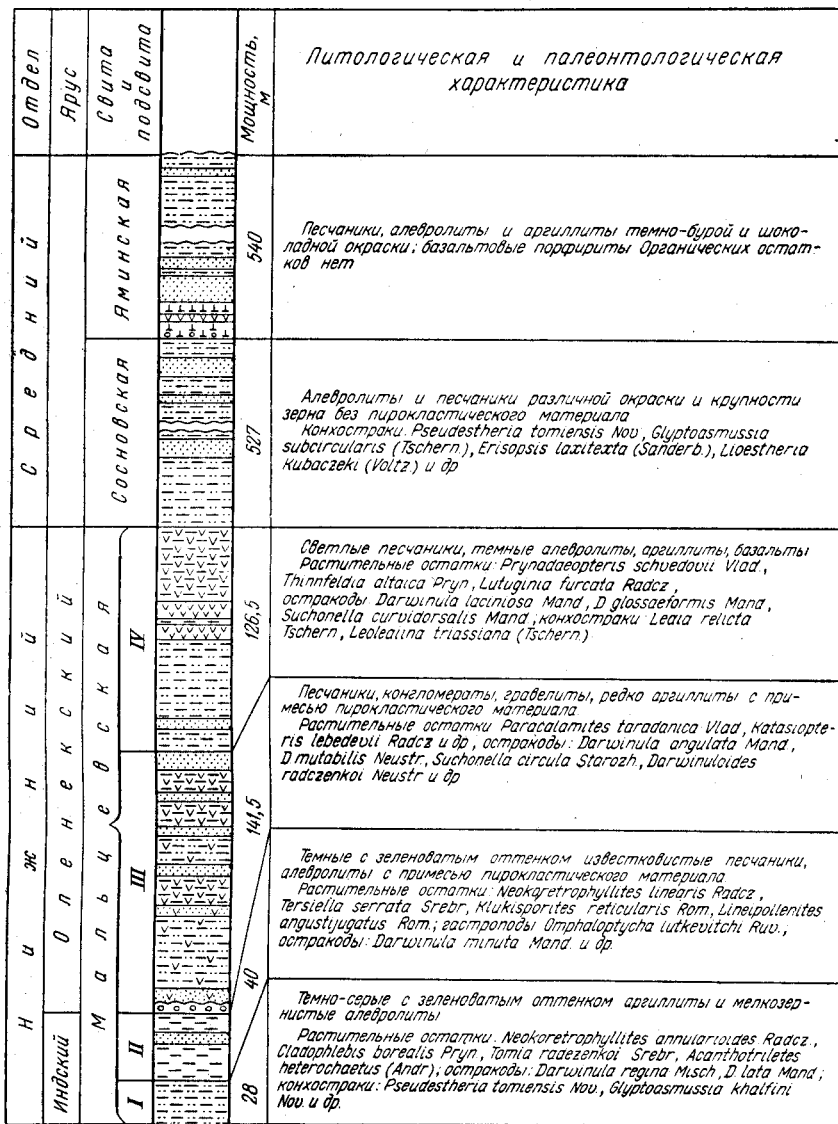 Отдел
Ярус
Свита
и
подсвита
Мощность,
м
Литологическая и палеонтологическая
характеристика
Средний
Яминская
540
Песчаники, алевролиты и аргиллиты темно-бурой и шоко-
ладной окраски; базальтовые порфириты Органических остат-
ков нет
Сосновская
527
Алевролиты и песчаники различной окраски и крупности
зерна без пирокластического материала
Конхостраки: Pseudestheria tomiensis Nov, Glyptoasmussia
subcircularis (Tschern.), Erisopsis laxitexta (Sanderb.), Lioestheria
kubaczeki (Voltz.) и др
Нижний
Оленекский
Мальцевская
IV
126,5
Светлые песчаники, темные алевролиты, аргиллиты, базальты
Растительные остатки: Prynadaeopteris schvedovii Vlad.,
Thinnfeldia altaica Pryn, Lutuginia furcata Radcz,
остракоды: Darwinula laciniosa Mand, D glossaeformis Mand,
Suchonella curvidorsalis Mand; конхостраки: Leaia relicta
Tschern, Leoleaiina triassiana (Tschern.)
III
141,5
Песчаники, конгломераты, гравелиты, редко аргиллиты с при-
месью пирокластического материала
Растительные остатки Paracalamites taradanica Vlad, Katasiopte-
ris lebedevii Radcz и др, остракоды: Darwinula angulata Mand,
D mutabilis Neustr, Suchonella circula Starozh, Darwinuloides
radczenkoi Neustr и др
40
Темные с зеленоватым оттенком известковистые песчаники,
алевролиты с примесью пирокластического материала
Растительные остатки: Neokoretrophyllites linearis Radcz,
Tersiella serrata Srebr, Klukisporites reticularis Rom, Lineipollenites
angustijugatus Rom; гастроподы Omphaloptycha lutkevitchi Ruv.;
остракоды: Darwinula minuta Mand и др.
Индский
II
I
28
Темно-серые с зеленоватым оттенком аргиллиты и мелкозер-
нистые алевролиты
Растительные остатки: Neokoretrophyllites annularioides Radcz.,
Cladophlebis borealis Pryn, Tomia radezenkoi Srebr, Acanthotriletes
heterochaetus (Andr); остракоды: Darwinula regina Misch, D lata Mand;
конхостраки: Pseudestheria tomiensis Nov., Glyptoasmussia khalfini
Nov. и др.